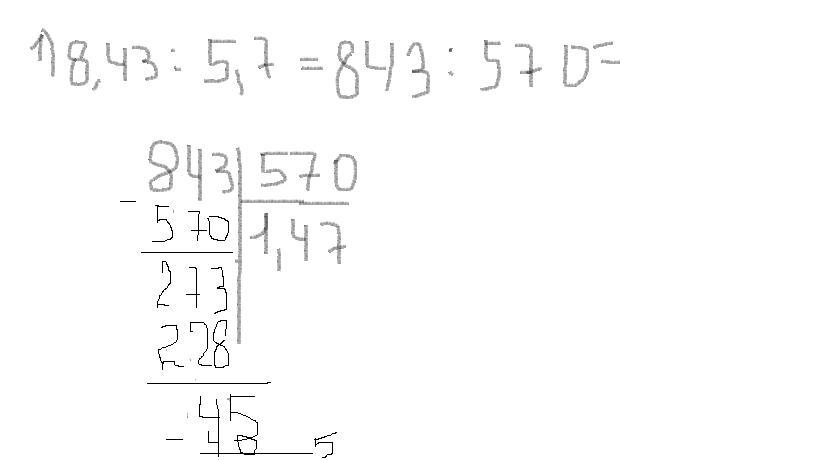 1) 8,43 : 5,7 = 843 : 570 =
843 | 570
- 570 | 1,47
273
228
45
- 43 5